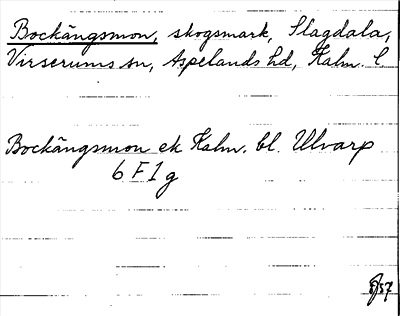 Bockängsmon, skogsmark, Slagdala,
Virserums sn, Aspelands hd, Kalm. l.
Bockängsmon ek Kalm. bl. Ulvarp
6 F 1 g